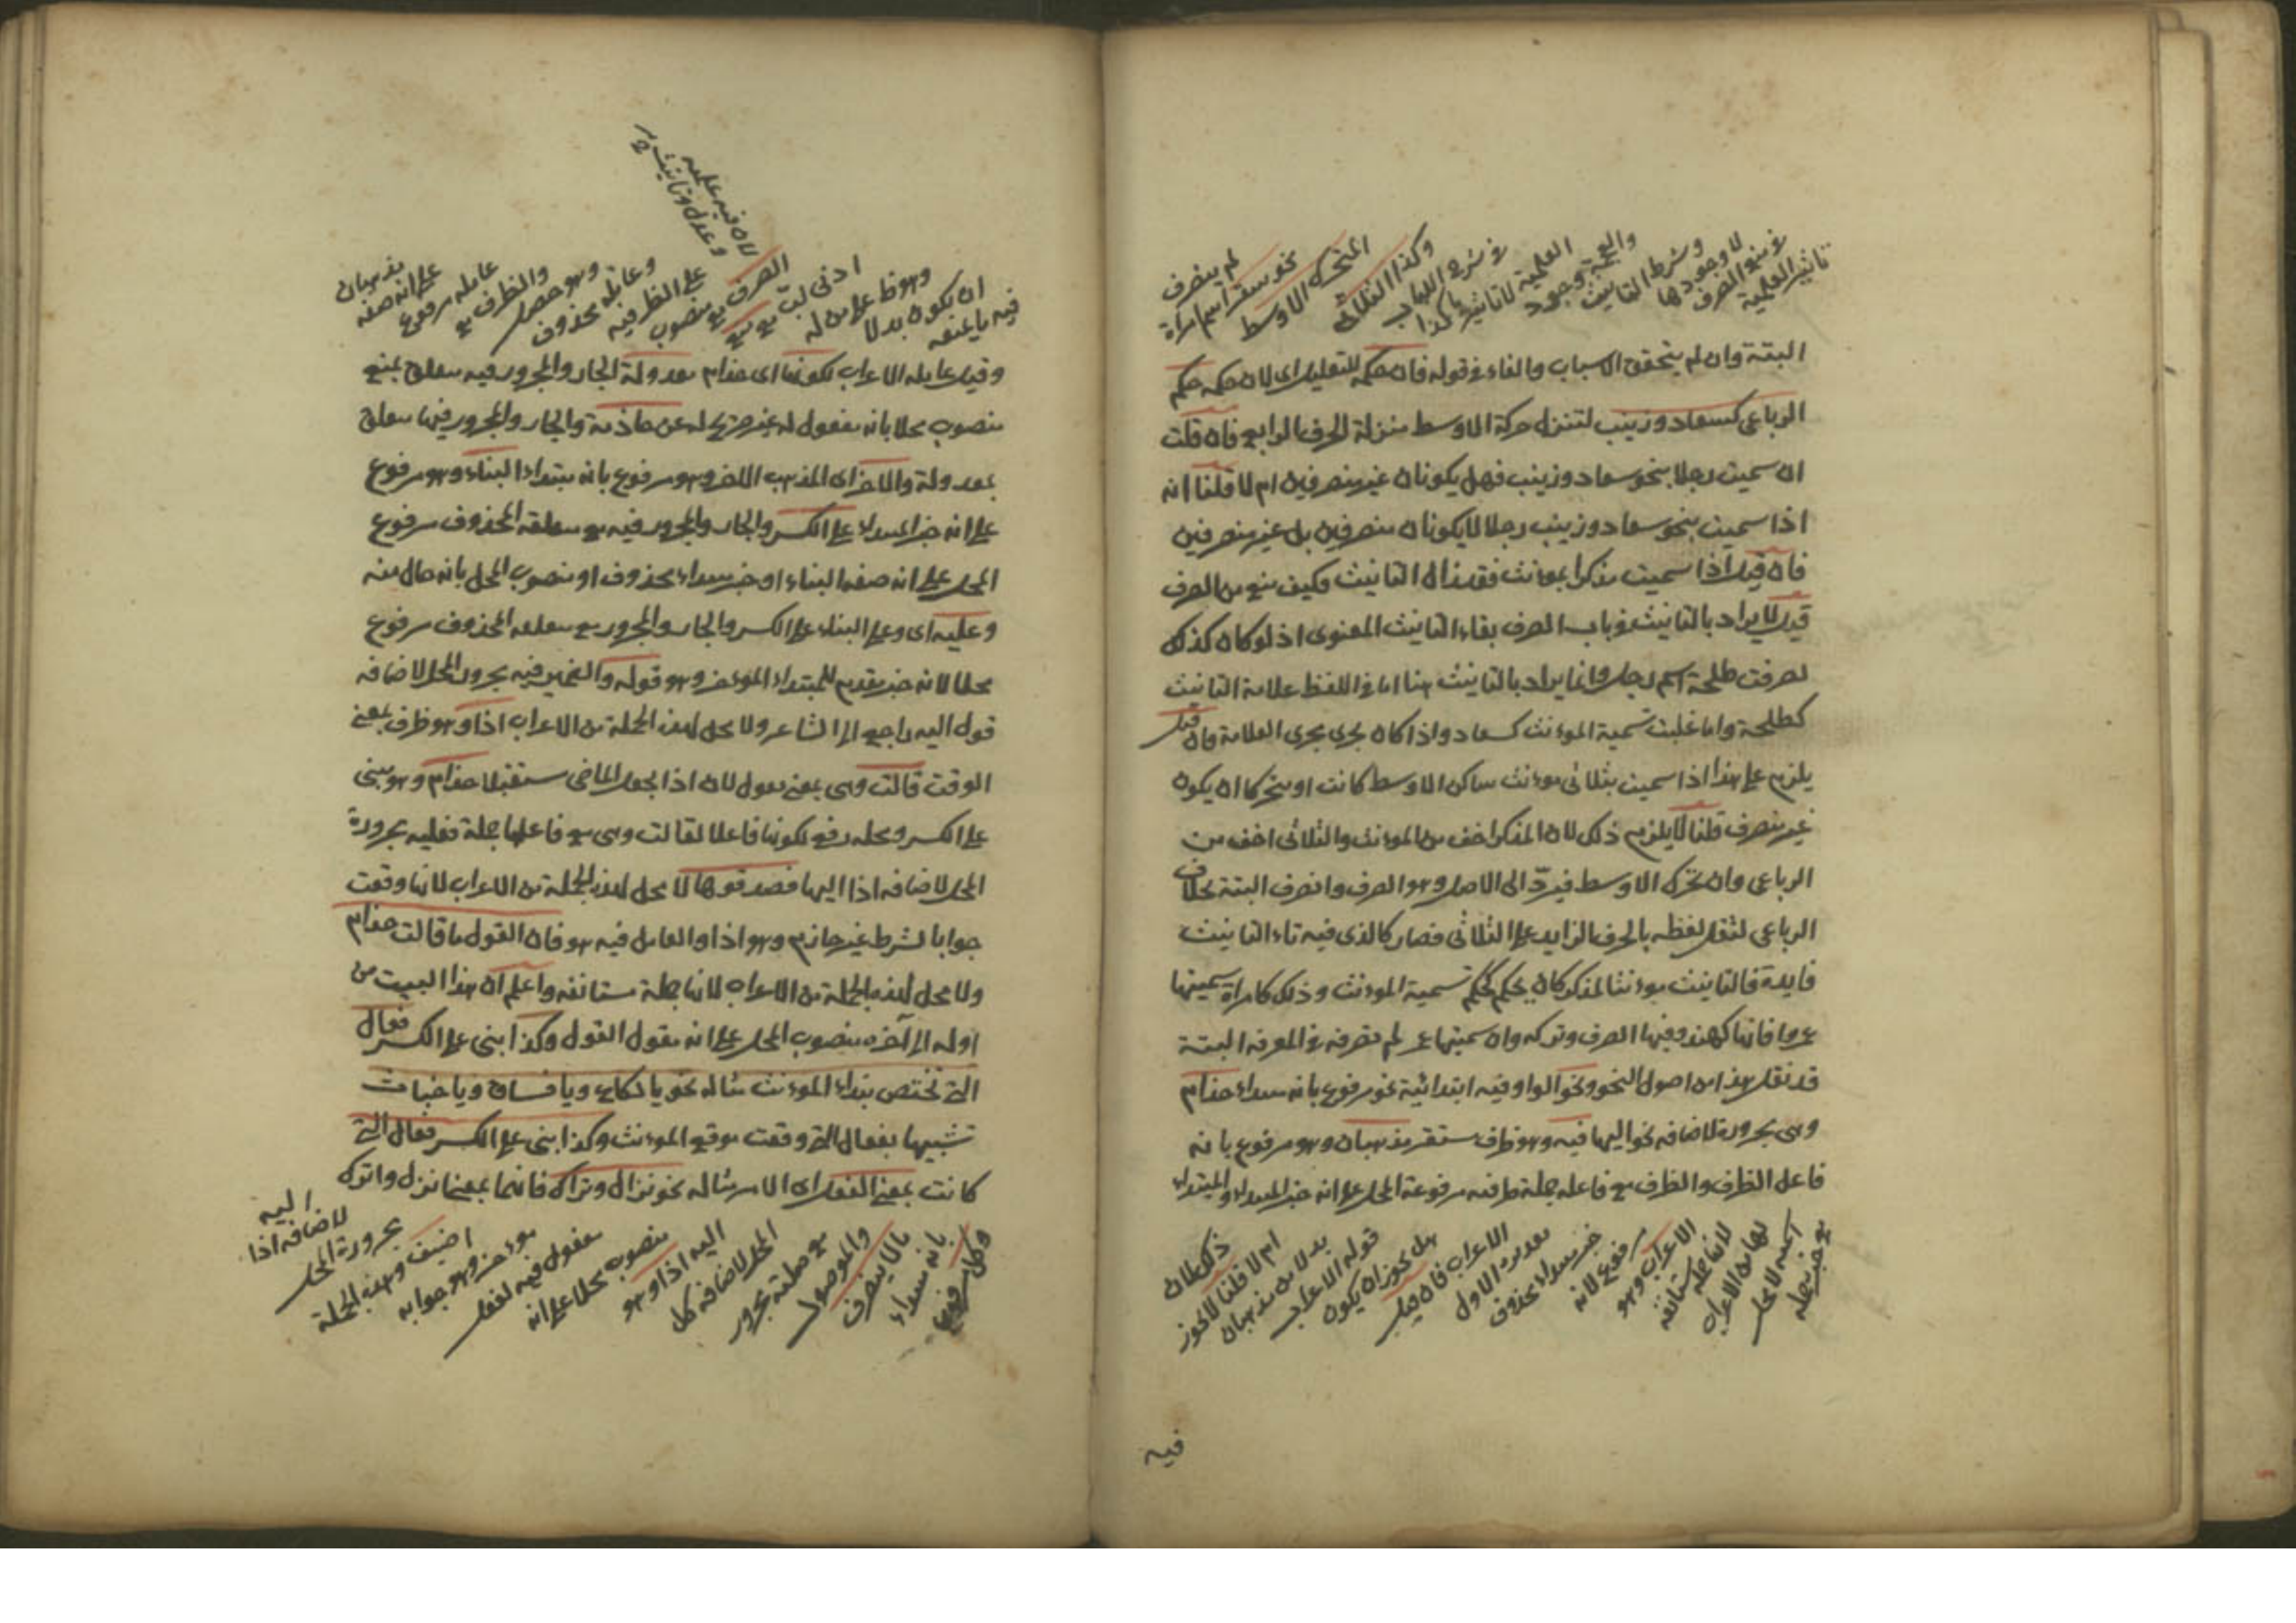 تأثير العلمية
في منع الصرف
لا وجودها
وشرط التأنيث
والعجمة وجود
العلمية لا تأثيرها كذا
في شرح اللباب
وكذا الثلاثي
المتحرك الاوسط
نحو سقر اسم امراة
لم ينصرف
البتة وان لم يتحقق الاسباب والفاء في قوله فان حكمه للتعليل اى لان حكمه حكم
الرباعي كسعاد وزينب لتنزل حركة الاوسط منزلة الحرف الرابع فان قلت
ان سميت رجلا بنحو سعاد وزينب فهل يكونان غير منصرفين ام لا قلنا انه
اذا سميت بنحو سعاد وزينب رجلا لا يكونان منصرفين بل غير منصرفين
فان قيل اذا سميت مذكرا بمؤنث فقد زال التانيث فكيف منع من الصرف
قيل لا يراد بالتانيث في باب الصرف بقاء التانيث المعنوى اذ لو كان كذلك
لصرفت طلحة اسم رجل وانما يراد بالتانيث هنا اما في اللفظ علامة التانيث
كطلحة واما غلبت تسمية المؤنث كسعاد واذا كان يجرى مجرى العلامة فان قيل
يلزم على هذا اذا سميت بثلاثى مؤنث ساكن الاوسط كانت او متحركا ان يكون
غير منصرف قلنا لا يلزم ذلك لان المذكر اخف من المؤنث والثلاثى اخف من
الرباعي وان تحرك الاوسط فيردّ الى الاصل وهو الصرف وانصرف البتة بخلاف
الرباعي لثقل لفظه بالحرف الزايد على الثلاثى فصار كالذى فيه تاء التانيث
فايدة فالتانيث مؤنثا لمذكر كان يحكم بحكم تسمية المؤنث وذلك كامراة سميتها
فانها كهند ففيها الصرف وتركه وان سميتها لم تصرفه في المعرفه البتة
قد نقل هذا من اصول النحو ونحو الواو فيه ابتدائية نحو مرفوع بانه مبتداء حذام
وهى مجرورة لاضافه نحو اليها فيه وهو ظرف مستقر مذهبان وهو مرفوع بانه
فاعل الظرف والظرف مع فاعله جملة ظرفيه مرفوعة المحل على انه خبر المبتداء والمبتداء
مع خبره جملة
اسمية لا محل
لها من الاعراب
لانها جملة مستانفة
الاعراب وهو
مرفوع لانه
خبر مبتداء محذوف
تقديره الاول
الاعراب فان قيل
هل يجوز ان يكون
قوله الاعراب
بدلا من مذهبان
ام لا قلنا لا يجوز
ذلك لان
فيه
فيه ما يمنعه
ان يكون بدلا
وهو ظاهر لمن له
ادنى لبّ مع منع
الصرف مع منصوب
على الظرفيه
وعامله محذوف
وهو حصل
والظرف مع
عامله مرفوع
على انه صفه
مذهبان
لان فيه علميه
وعدل وتانيث
وقيل عامله الاعراب لكونها اى حذام معدولة الجار والمجرور فيه متعلق بمنع
منصوب محلا بانه مفعول له غير صريح له عن حاذمة والجار والمجرور فيها متعلق
بمعدولة والاخر اى المذهب الاخر وهو مرفوع بانه مبتداء البناء وهو مرفوع
على انه خبر المبتداء على الكسر والجار والمجرور فيه مع متعلقه المحذوف مرفوع
المحل على انه صفه البناء او خبر مبتداء محذوف او منصوب المحل بانه حال منه
وعليه اى وعلى البناء على الكسر والجار والمجرور مع متعلقه المحذوف مرفوع
محلا لانه خبر مقدم للمبتداء المؤخر وهو قوله والضمير فيه مجرور المحل لاضافه
قول اليه راجع الى الشاعر ولا محل لهذه الجملة من الاعراب اذا وهو ظرف بمعنى
الوقت قالت وهى بمعنى تقول لان اذا يجعل الماضى مستقبلا حذام وهو مبنى
على الكسر ومحله رفع لكونها فاعلا لقالت وهى مع فاعلها جملة فعليه مجرورة
المحل لاضافه اذا اليها فصدقوها لا محل لهذه الجملة من الاعراب لانها وقعت
جوابا لشرط غير جازم وهو اذا والعامل فيه هو فان القول ما قالت حذام
ولا محل لهذه الجملة من الاعراب لانها جملة مستانفه واعلم ان هذا البيت من
اوله الى آخره منصوب المحل على انه مقول القول وكذا بنى على الكسر فعال
التى تختص بنداء المؤنث مثاله نحو يا لكاع ويا فساق ويا خباث
تشبيها بفعال التى وقعت موقع المؤنث وكذا بنى على الكسر فعال التى
كانت بمعنى الفعل اى الامر مثاله نحو نزال وتراك فانهما بمعنى انزل واترك
وكل مرفوع
بانه مبتداء
ما لا ينصرف
والموصول
مع صلته مجرور
المحل لاضافه كل
اليه اذا وهو
منصوب محلا على انه
مفعول فيه لفعل
مؤخر وهو جوابه
اضيف وهذه الجملة
مجرورة المحل
لاضافه اذا
اليه